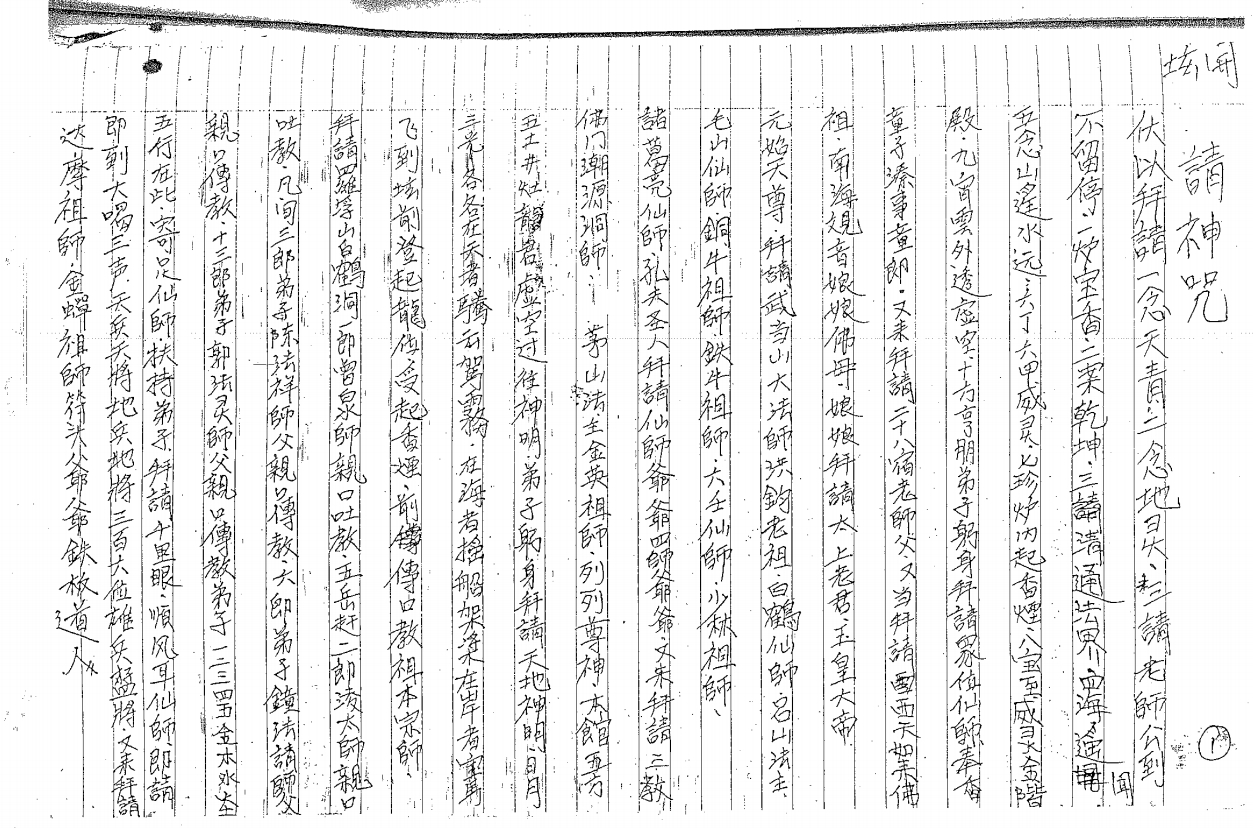 開坛
請神咒
①
伏以拜請一念天青二念地灵三請老師公到
不留停一炉宝香二栗乾坤三請清通法界四海遥聞
五念山遙水远六丁六甲威灵七珍炉内起香煙八宝至威灵金階
殿九霄雲外透虚空十方亨朋弟子躬身拜請眾位仙師奉香
童子湊事童郎又来拜請二十八宿老師父又当拜請西天如来佛
祖南海观音娘娘佛母娘娘拜請太上老君玉皇大帝
元始天尊拜請武当山大法師洪鈞老祖白鶴仙師呂山法主
毛山仙師銅牛祖師鉄牛祖師六壬仙師少林祖師
諸葛亮仙師孔夫圣人拜請仙師爺爺四師爺爺又来拜請三教
佛门潮源洞師茅山法主金英祖師列列尊神本館五方
五土井灶龍君虚空过往神明弟子躬身拜請天地神明日月
三光各各在天者騰云駕霧在海者搖船架槳在岸者
飞到坛前登起龍位受起香煙前傳傳口教祖本宗師
拜請羅浮山白鶴洞一郎曾泉師親口吐教五岳赶二郎凌太師親口
吐教凡间三郎弟子陈法祥師父親口傳教六郎弟子鐘法請師父
親口傳教十三郎弟子郭法灵師父親口傳教弟子一二三四五金木水土
五行在此寄足仙師扶持弟子拜請千里眼順风耳仙師即請
即到大喝三声天兵天將地兵地將三百大位雄兵猛將又来拜請
达摩祖師金蟬祖師符头父爺爺鉄板道人